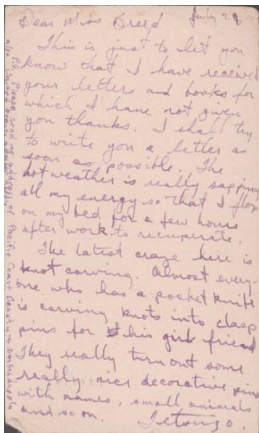 July 28
Dear Miss Breed
This is just to let you
know that I have received
your letters and books for
which I have not given
you thanks. I shall try
to write you a letter as
soon as possible. The
hot weather is really sapping
all my energy so that I flop
on my bed for a few hours
after work to recuperate.
The latest craze here is
knot carving. Almost every-
one who has a pocket knife
is carving knots into clasp
pins for his girl friend
They really turn out some
really nice decorative pins
with names, small animals
and so on.
Tetsuzo.